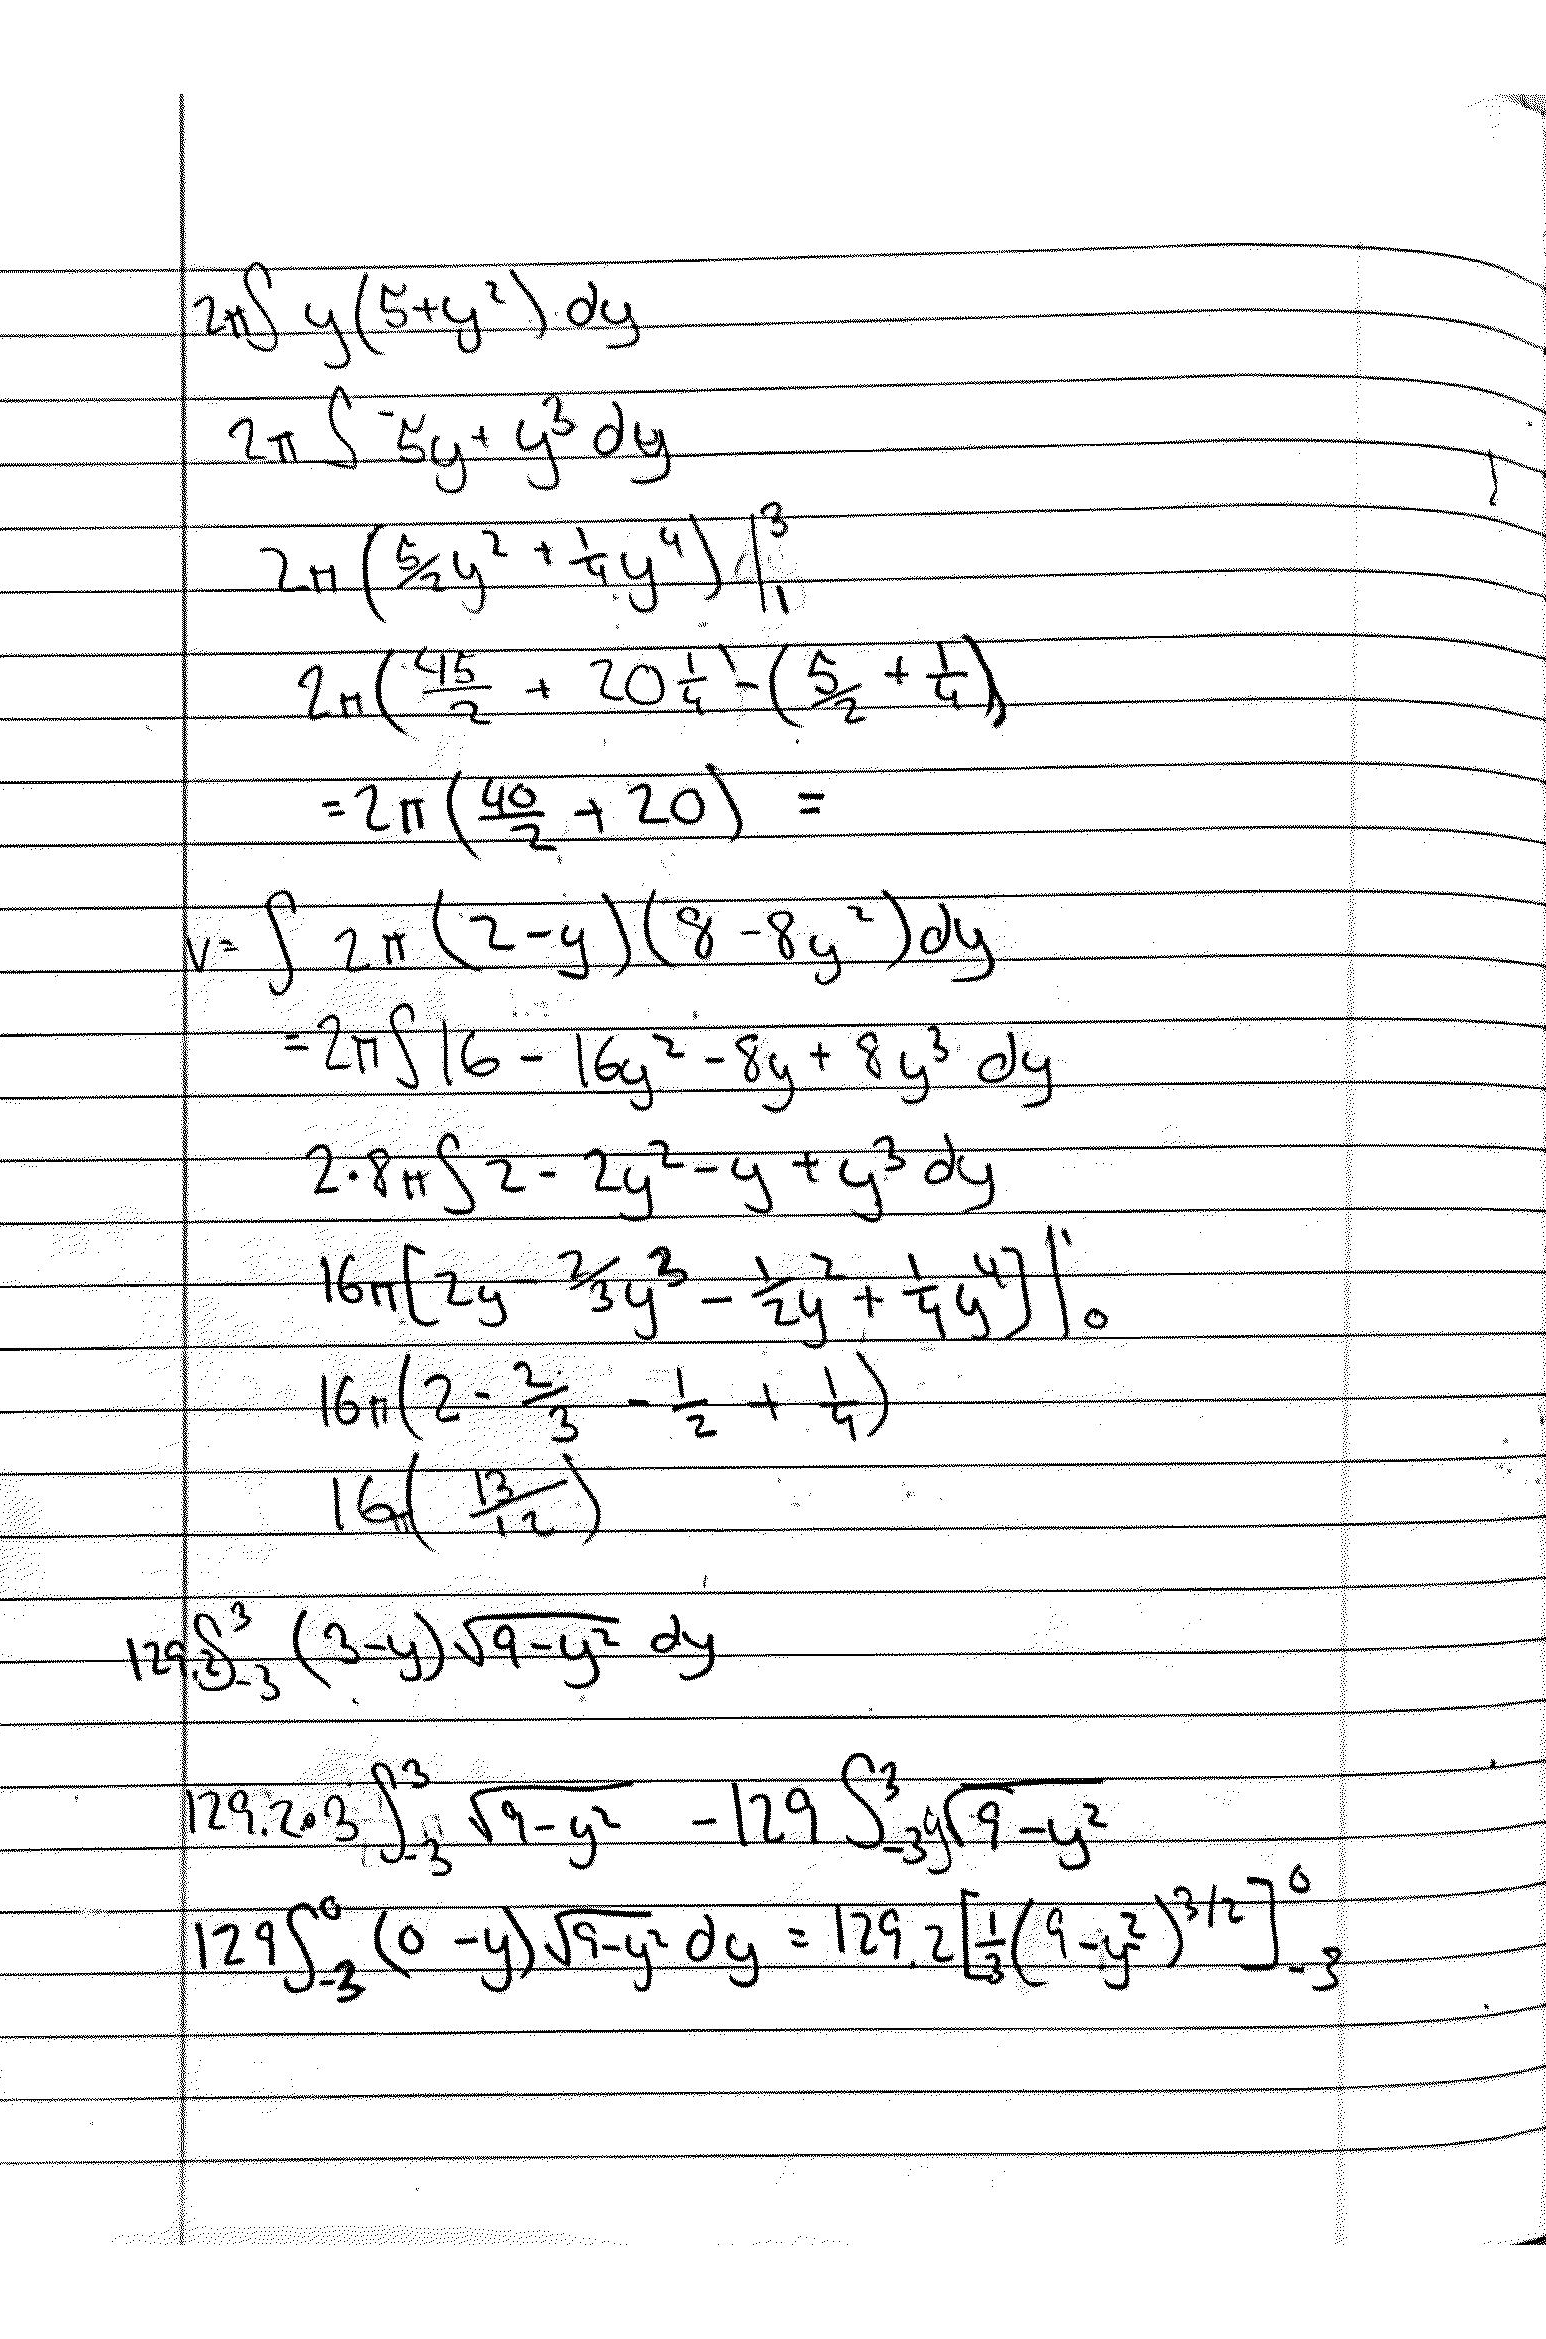 2π∫ y(5+y²) dy
2π ∫ 5y + y³ dy
2π (5/2 y² + 1/4 y⁴) |₁³
2π (45/2 + 20 1/4) - (5/2 + 1/4)
= 2π (40/2 + 20) =
V = ∫ 2π (2-y)(8-8y²) dy
= 2π ∫ 16 - 16y² - 8y + 8y³ dy
2·8π ∫ 2 - 2y² - y + y³ dy
16π [2y - 2/3 y³ - 1/2 y² + 1/4 y⁴] |₀¹
16π (2 - 2/3 - 1/2 + 1/4)
16π (13/12)
129.2 ∫₋₃³ (3-y) √(9-y²) dy
129.2·3 ∫₋₃³ √(9-y²) - 129 ∫₋₃³ y√(9-y²)
129 ∫₋₃⁰ (0-y) √(9-y²) dy = 129.2 [1/3 (9-y²)^3/2]₋₃⁰